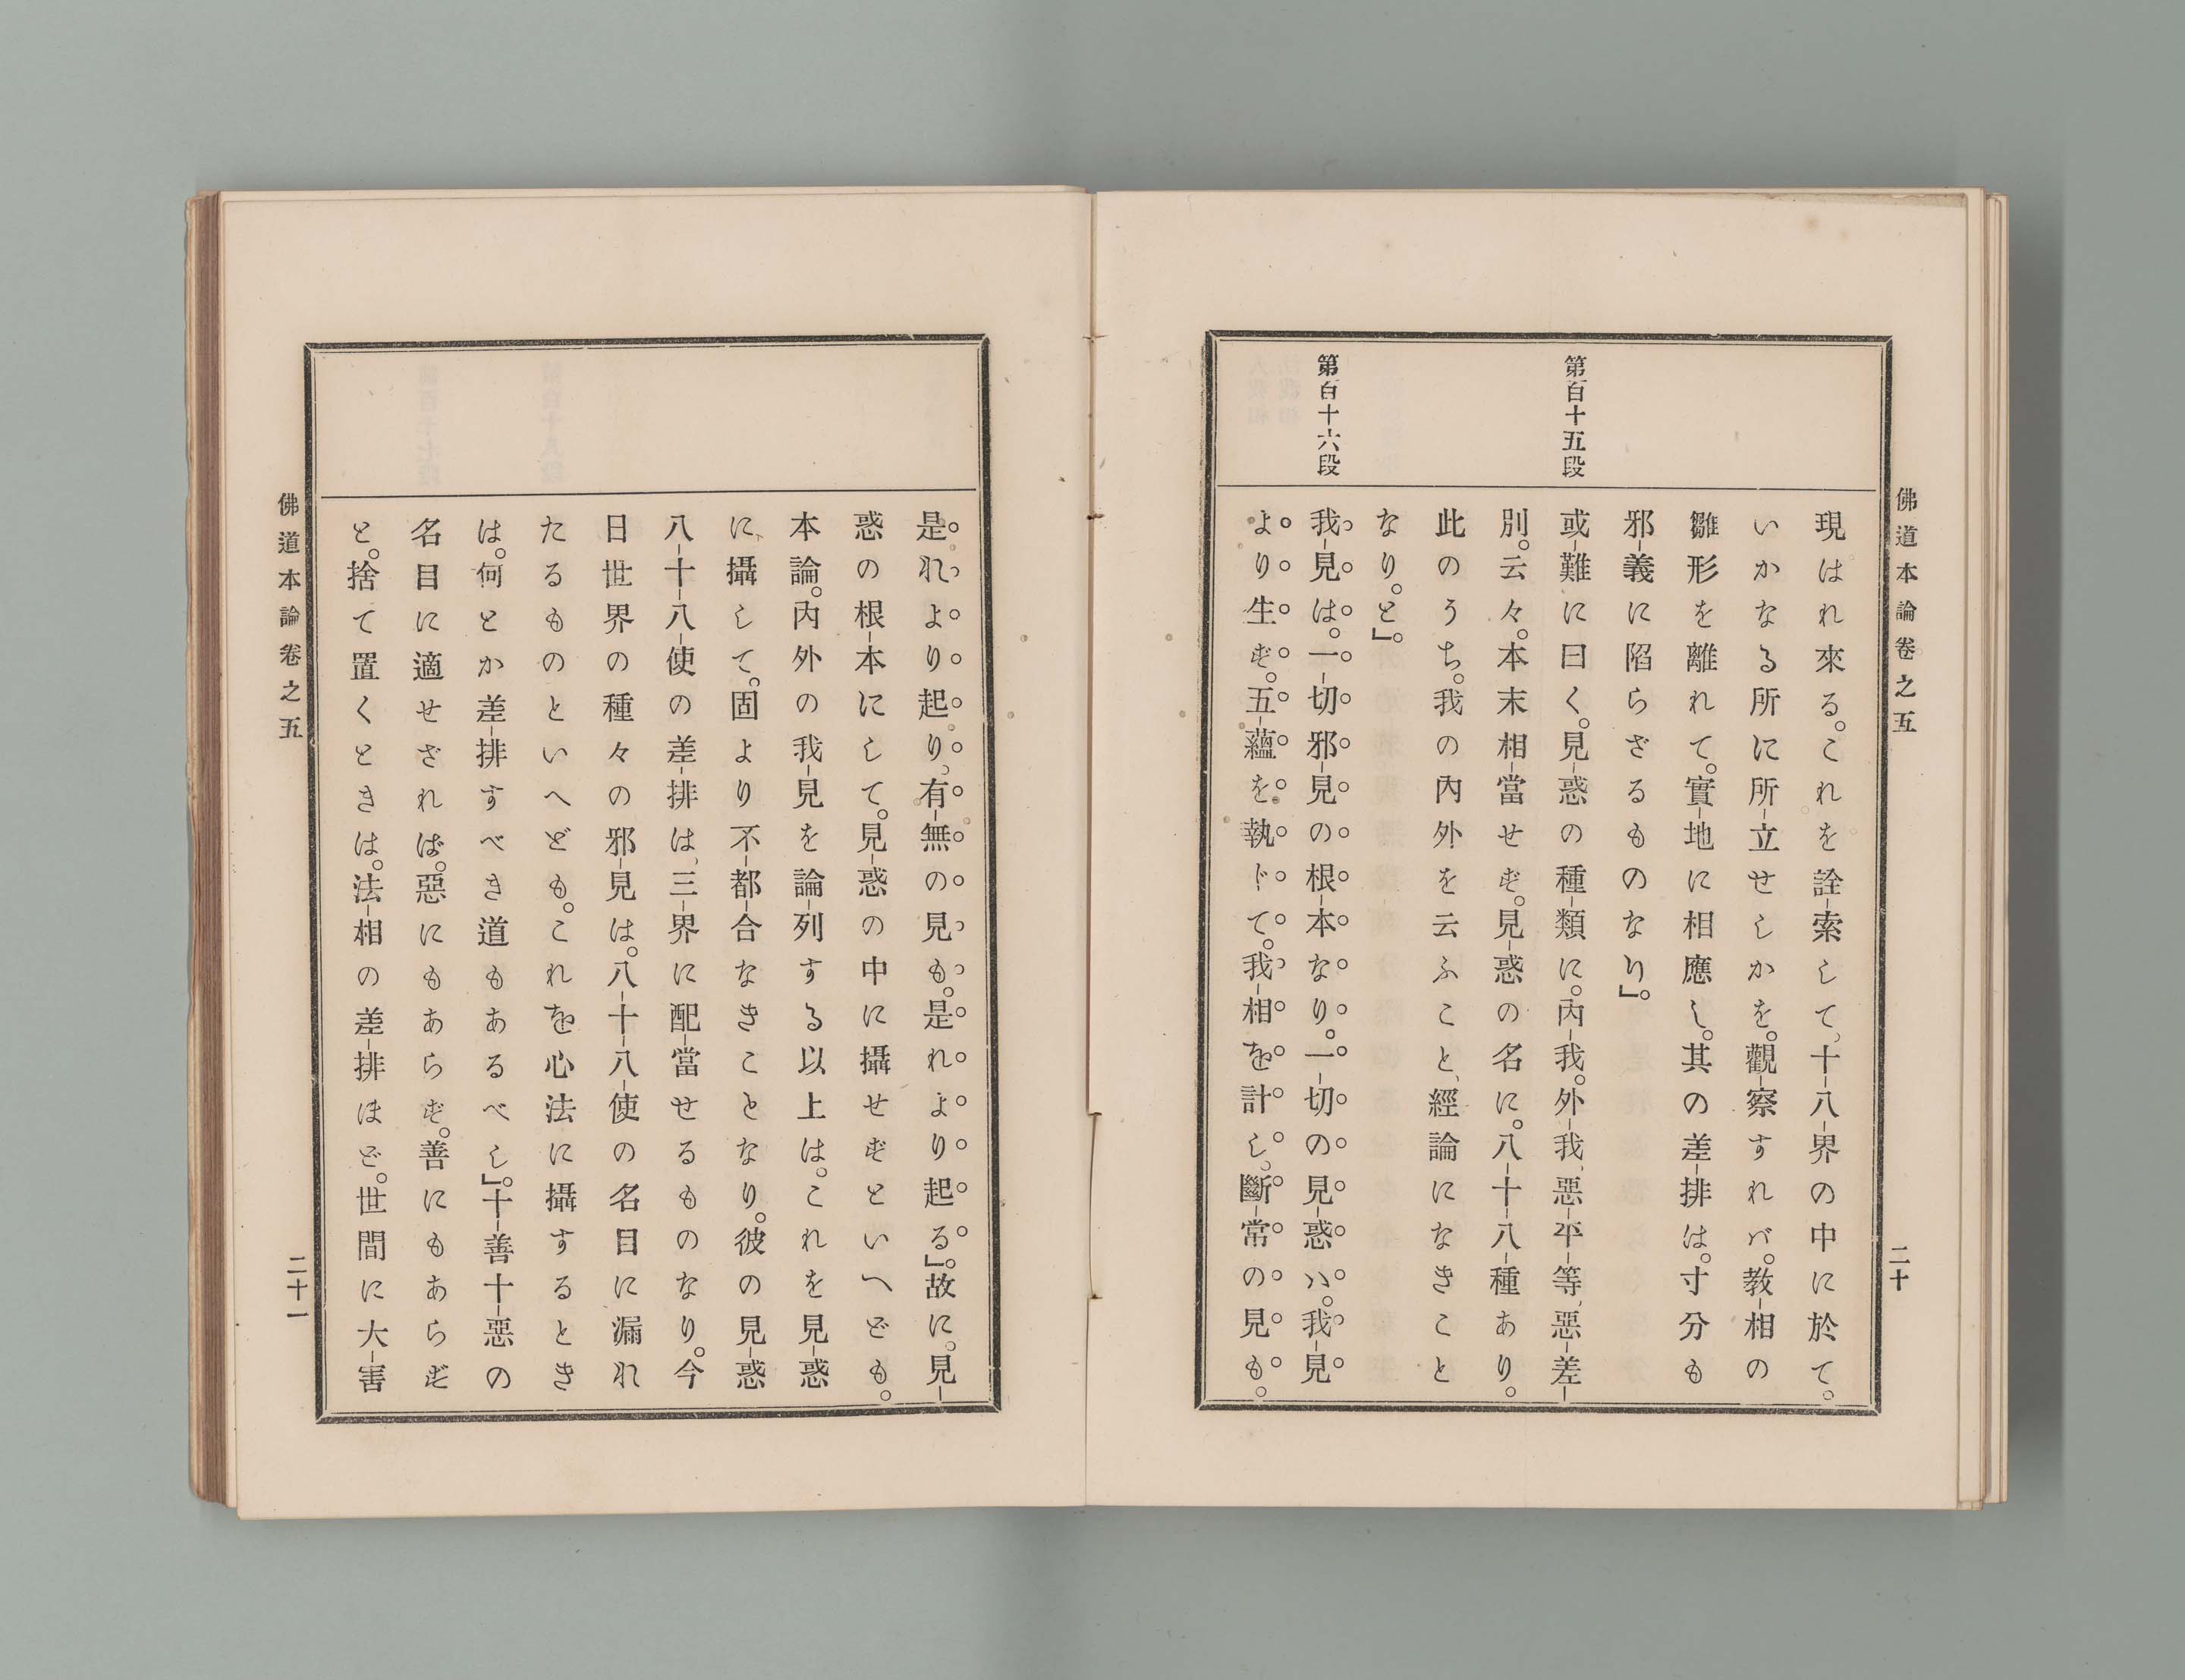 佛道本論卷之五
二十
現はれ來る。これを詮-索して、十-八-界の中に於て。
いかなる所に所-立せしかを。觀-察すれバ。教-相の
雛形を離れて。實-地に相應し。其の差-排は。寸分も
邪-義に陷らざるものなり』。
第百十五段
或-難に曰く。見-惑の種-類に。內-我。外-我、惡-平-等、惡-差-
別。云々。本末相-當せず。見-惑の名に。八-十-八-種あり。
此のうち。我の內外を云ふこと、經論になきこと
なり。と』。
第百十六段
我-見は。一-切邪-見の根-本なり。一-切の見-惑ハ。我-見
より生ず。五-蘊を執ドて。我-相を計し、斷-常の見も。
是れより起り、有-無の見も。是れより起る』。故に。見-
惑の根-本にして。見-惑の中に攝せずといへども。
本論。內外の我-見を論-列する以上は。これを見-惑
に、攝して。固より不-都-合なきことなり。彼の見-惑
八-十-八-使の差-排は、三-界に配-當せるものなり。今
日世界の種々の邪-見は。八-十-八-使の名目に漏れ
たるものといへども。これを心法に攝するとき
は。何とか差-排すべき道もあるべし』。十-善十-惡の
名目に適せざれば。惡にもあらず。善にもあらず
と。捨て置くときは。法-相の差-排ほど。世間に大-害
佛道本論卷之五
二十一